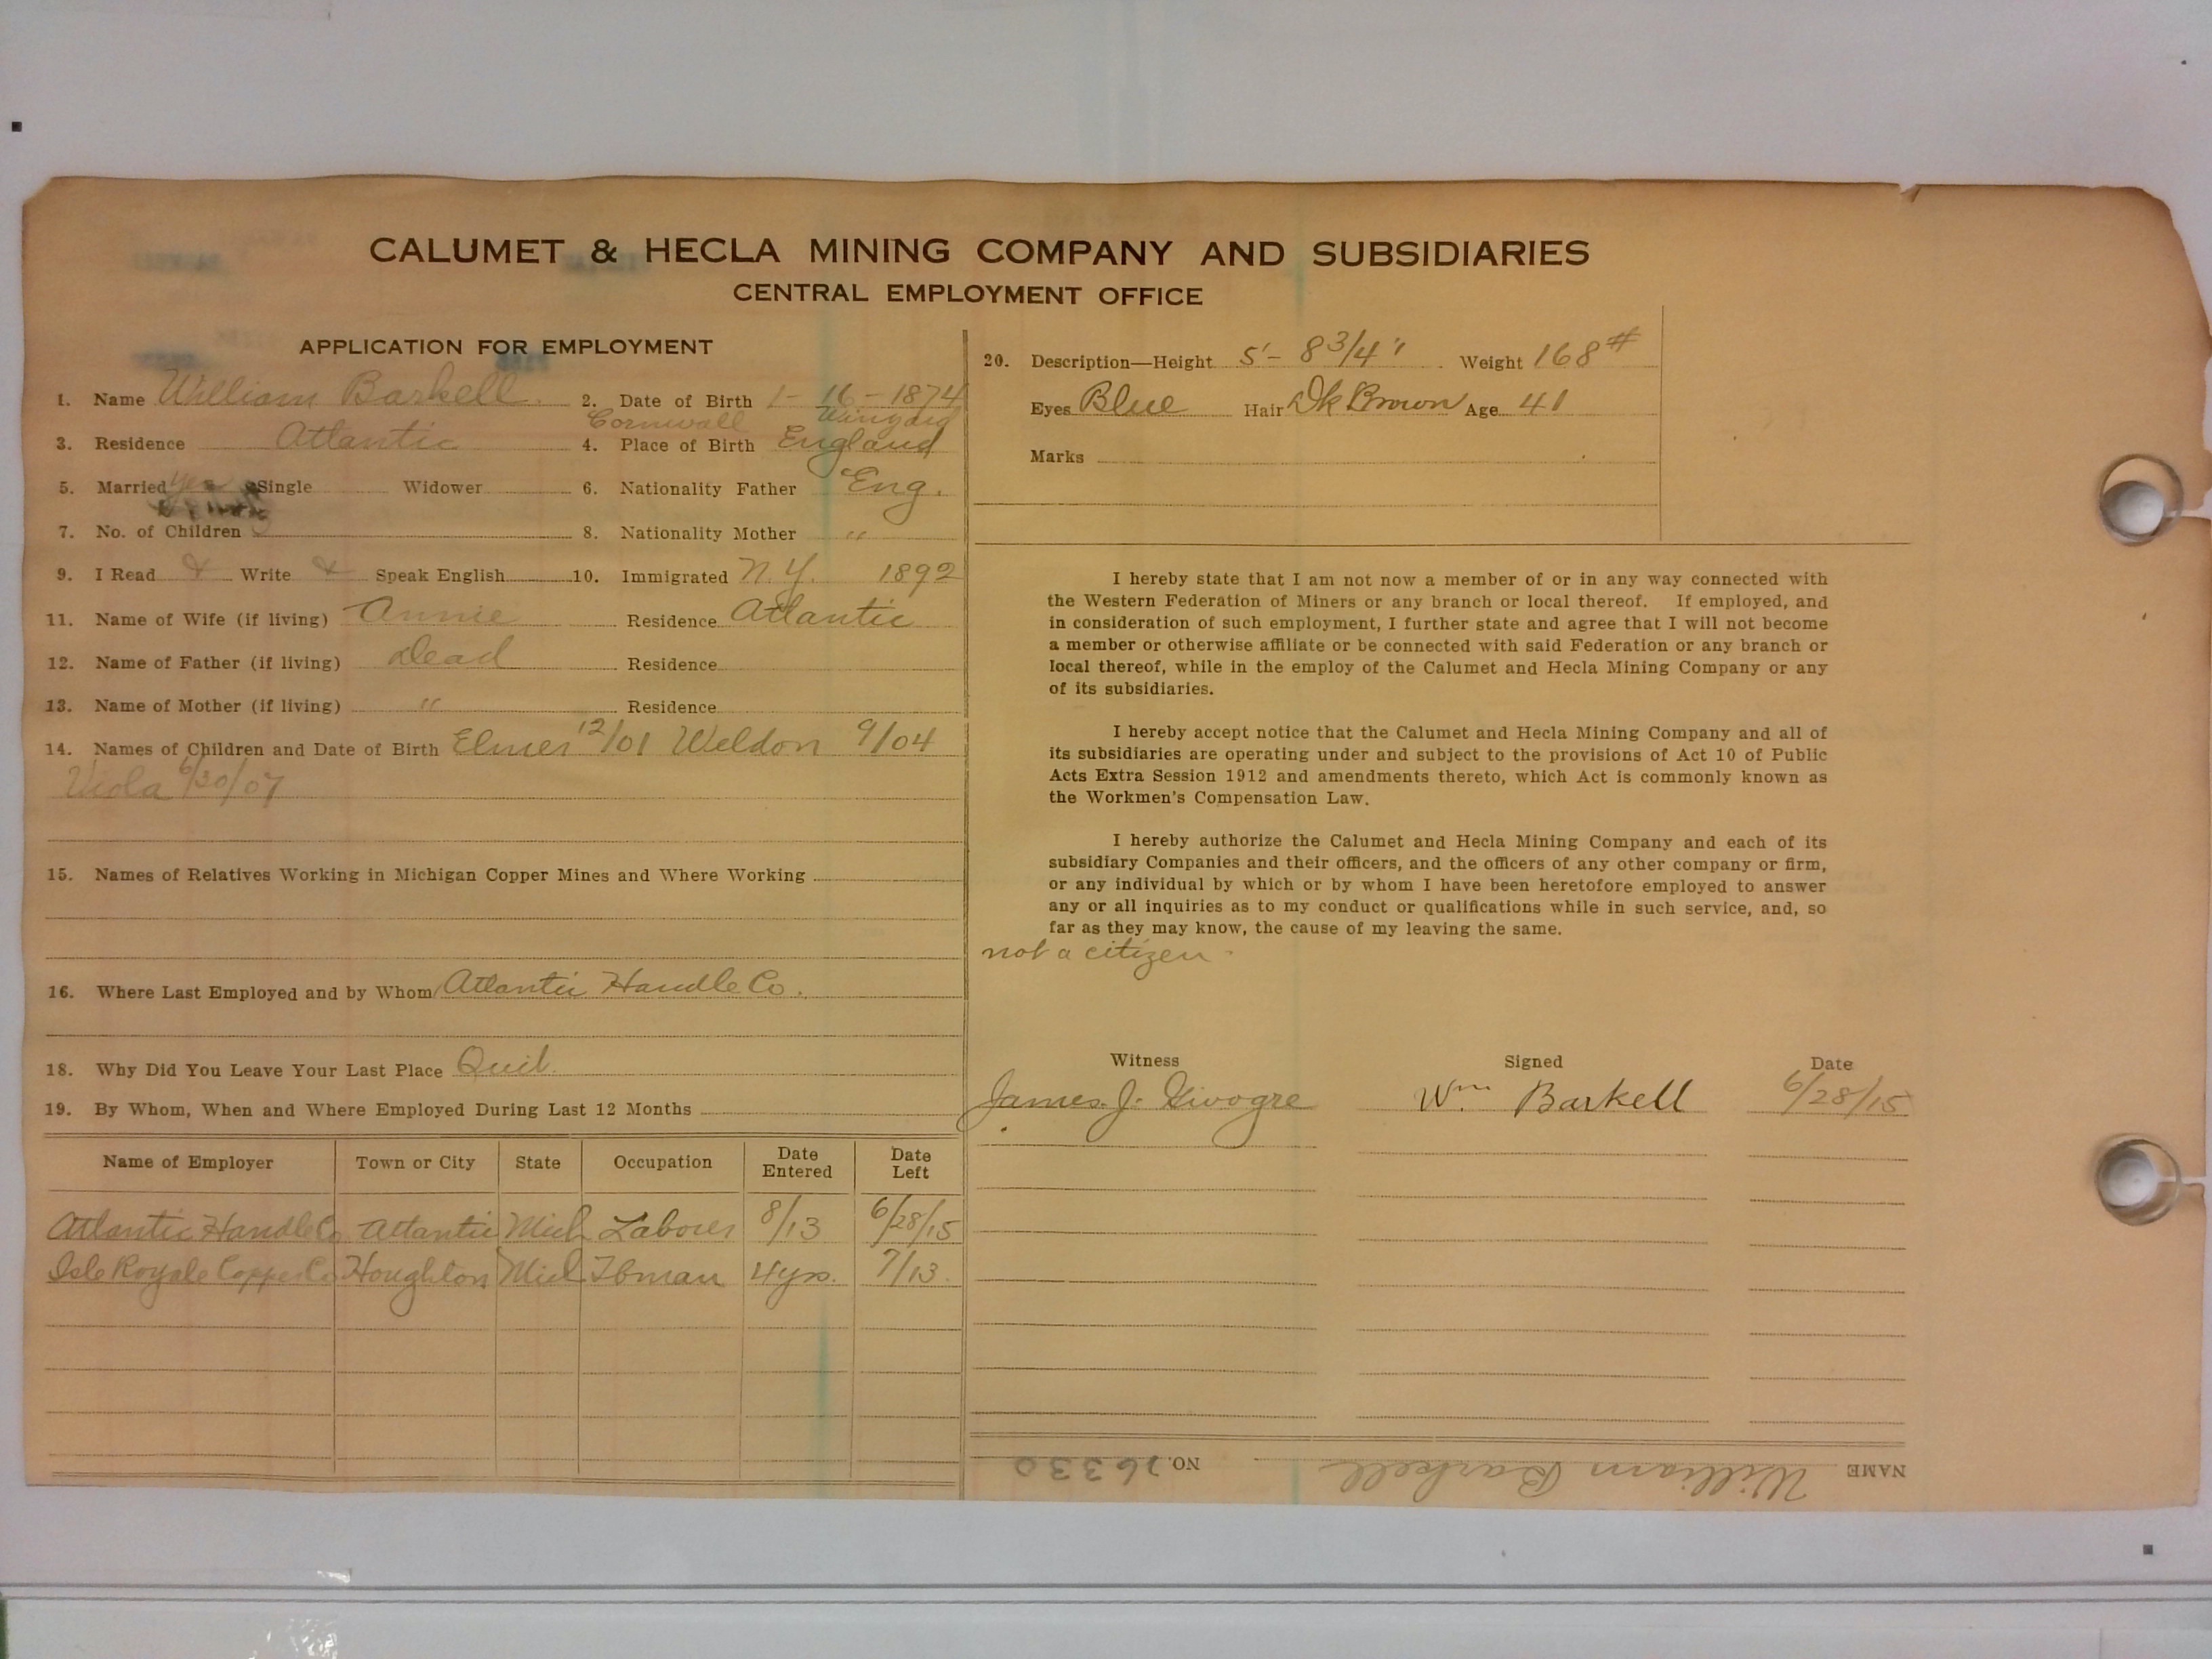 CALUMET & HECLA MINING COMPANY AND SUBSIDIARIES
CENTRAL EMPLOYMENT OFFICE
APPLICATION FOR EMPLOYMENT
1. Name William Barkell. 2. Date of Birth 1-16-1874
Cornwall
3. Residence Atlantic 4. Place of Birth England
5. Married yes Single Widower 6. Nationality Father Eng.
7. No. of Children 3 8. Nationality Mother "
9. I Read & Write & Speak English 10. Immigrated N.Y. 1892
11. Name of Wife (if living) Annie Residence Atlantic
12. Name of Father (if living) Dead Residence
13. Name of Mother (if living) " Residence
14. Names of Children and Date of Birth Elmer 12/01 Weldon 9/04
Viola 6/30/07
15. Names of Relatives Working in Michigan Copper Mines and Where Working
16. Where Last Employed and by Whom Atlantic Handle Co.
18. Why Did You Leave Your Last Place Quit.
19. By Whom, When and Where Employed During Last 12 Months
Name of Employer Town or City State Occupation Date Entered Date Left
Atlantic Handle Co Atlantic Mich Laborer 8/13 6/28/15
Isle Royale Copper Co Houghton Mich Tbman 4 yrs. 7/13.
20. Description—Height 5'-8 3/4" Weight 168#
Eyes Blue Hair Dk Brown Age 41
Marks
I hereby state that I am not now a member of or in any way connected with
the Western Federation of Miners or any branch or local thereof. If employed, and
in consideration of such employment, I further state and agree that I will not become
a member or otherwise affiliate or be connected with said Federation or any branch or
local thereof, while in the employ of the Calumet and Hecla Mining Company or any
of its subsidiaries.
I hereby accept notice that the Calumet and Hecla Mining Company and all of
its subsidiaries are operating under and subject to the provisions of Act 10 of Public
Acts Extra Session 1912 and amendments thereto, which Act is commonly known as
the Workmen's Compensation Law.
I hereby authorize the Calumet and Hecla Mining Company and each of its
subsidiary Companies and their officers, and the officers of any other company or firm,
or any individual by which or by whom I have been heretofore employed to answer
any or all inquiries as to my conduct or qualifications while in such service, and, so
far as they may know, the cause of my leaving the same.
not a citizen -
Witness Signed Date
James J. Wm Barkell 6/28/15
NAME William Barkell NO. 16330